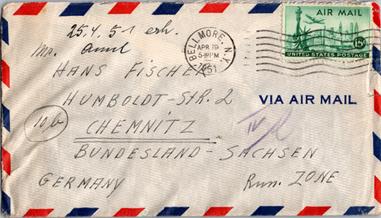 25.4.51 erh.
Mr.
HANS FISCHER
HUMBOLDT-STR. 2
10b
CHEMNITZ
BUNDESLAND-SACHSEN
GERMANY
Russ. ZONE
VIA AIR MAIL
BELLMORE, N.Y.
APR 19
1951
AIR MAIL
15¢
UNITED STATES POSTAGE